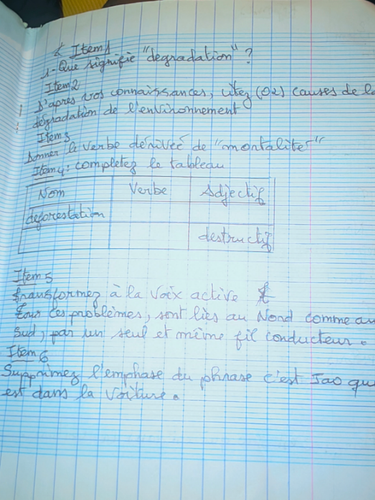 Item1
1- Que signifie "dégradation" ?
Item2
D'après vos connaissances, citez (02) causes de la
dégradation de l'environnement
Item3
Donner le verbe dérivée de "mortalité"
Item4: completez le tableau
Nom Verbe Adjectif
deforestation
destructif
Item 5
transformez à la voix active
Tous ces problèmes, sont liés au Nord comme au
Sud, par un seul et même fil conducteur.
Item 6
Supprimez l'emphase du phrase c'est Jao qui
est dans la voiture.